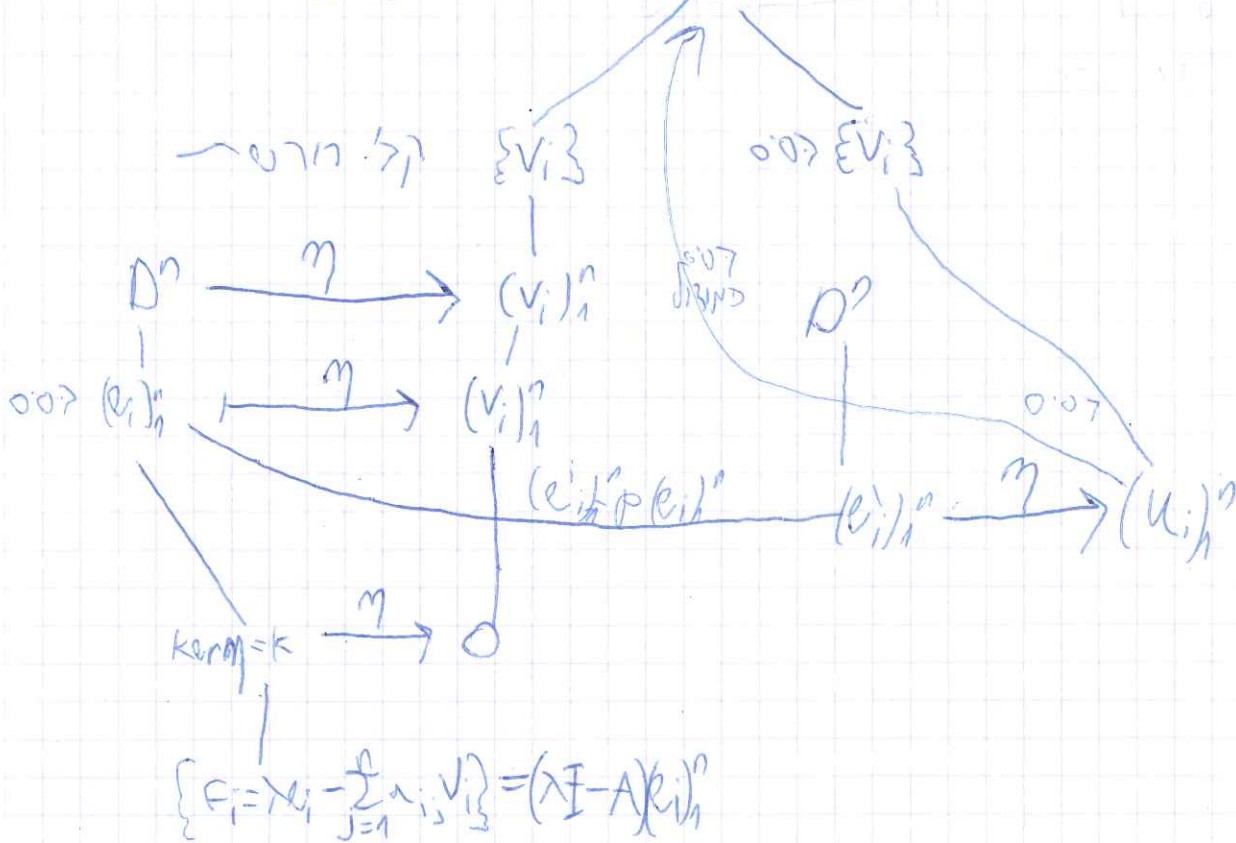 {Vᵢ} בסיס {Vᵢ}
Dⁿ η (Vᵢ)₁ⁿ בסיס Dⁿ
בסיס (eᵢ)₁ⁿ η (Vᵢ)₁ⁿ בסיס
(e'ᵢ)₁ⁿ = p(eᵢ)₁ⁿ (e'ᵢ)₁ⁿ η (uᵢ)₁ⁿ
kerη=k η 0
{fᵢ=λeᵢ-∑ⁿⱼ₌₁ aᵢⱼVᵢ}=(λI-A)(eᵢ)₁ⁿ